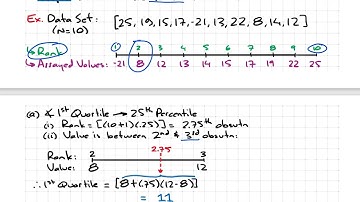 Ex. Data Set: [25, 19, 15, 17, -21, 13, 22, 8, 14, 12]
(N=10)
① 2 3 4 5 6 7 8 9 10
→ Rank
→ Arrayed Values: -21 8 12 13 14 15 17 19 22 25
(a) * 1st Quartile → 25th Percentile
(i) Rank = [(10+1)(.25)] = 2.75th obsvtn
(ii) Value is between 2nd & 3rd obsvtn:
2.75
Rank: 2 3
Value: 8 12
∴ 1st Quartile = [8+(.75)(12-8)]
= 11